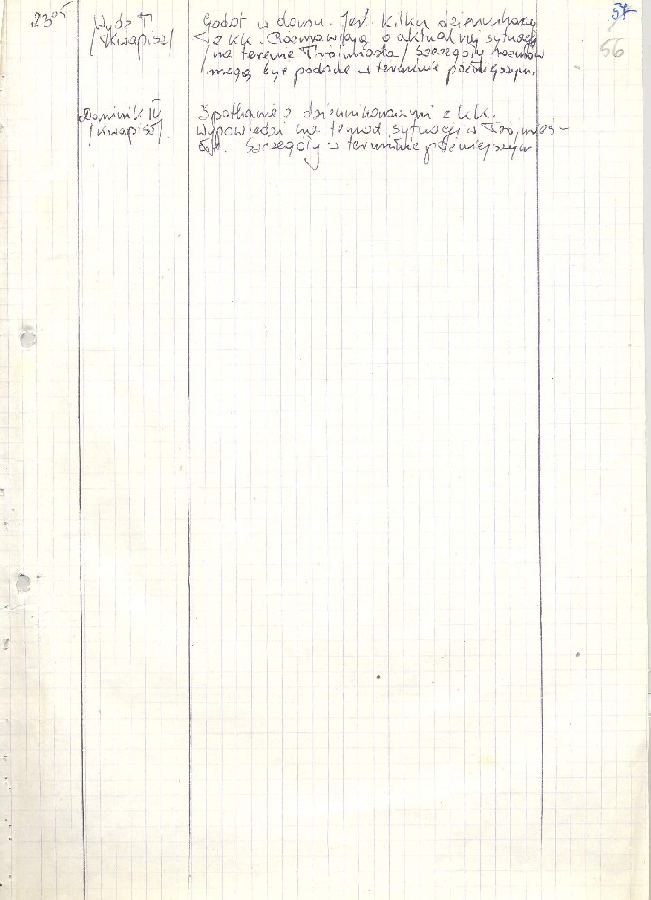 57
56
23⁰⁵ Wydz T Godot w domu. Jest kilku dziennikarzy
/Kwapisz/ z KK. Rozmawiają o aktualnej sytuacji
na terenie Trójmiasta/ Szczegóły rozmów
mogą być podane w terminie późniejszym.
Dominik IV Spotkanie z dziennikarzami z KK.
/Kwapisz/ Wypowiedzi na temat sytuacji w Trójmieś-
cie. Szczegóły w terminie późniejszym